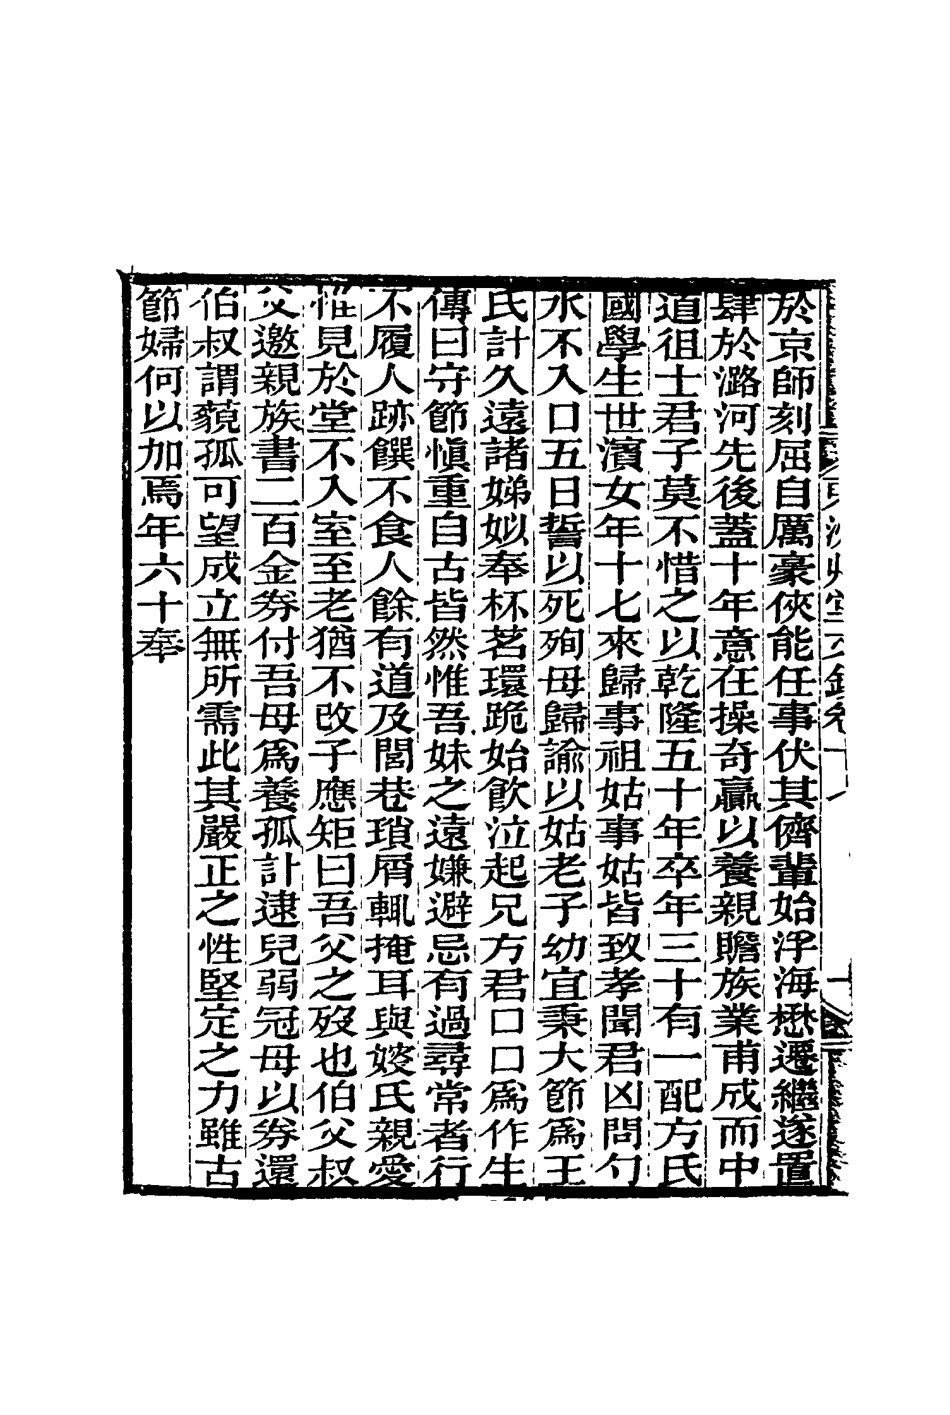 於京師刻屈自厲豪俠能任事伏其儕輩始浮海懋遷繼遂置
肆於潞河先後蓋十年意在操奇贏以養親贍族業甫成而中
道徂士君子莫不惜之以乾隆五十年卒年三十有一配方氏
國學生世濱女年十七來歸事祖姑事姑皆致孝聞君凶問勺
水不入口五日誓以死殉母歸諭以姑老子幼宜秉大節為王
氏計久遠諸娣姒奉杯茗環跪始飲泣起兄方君口口為作生
傳曰守節慎重自古皆然惟吾妹之遠嫌避忌有過尋常者行
不履人跡饌不食人餘有道及閭巷瑣屑輒掩耳與嫂氏親愛
惟見於堂不入室至老猶不改子應矩曰吾父之歿也伯父叔
父邀親族書二百金券付吾母為養孤計逮兒弱冠母以券還
伯叔謂藐孤可望成立無所需此其嚴正之性堅定之力雖古
節婦何以加焉年六十奉